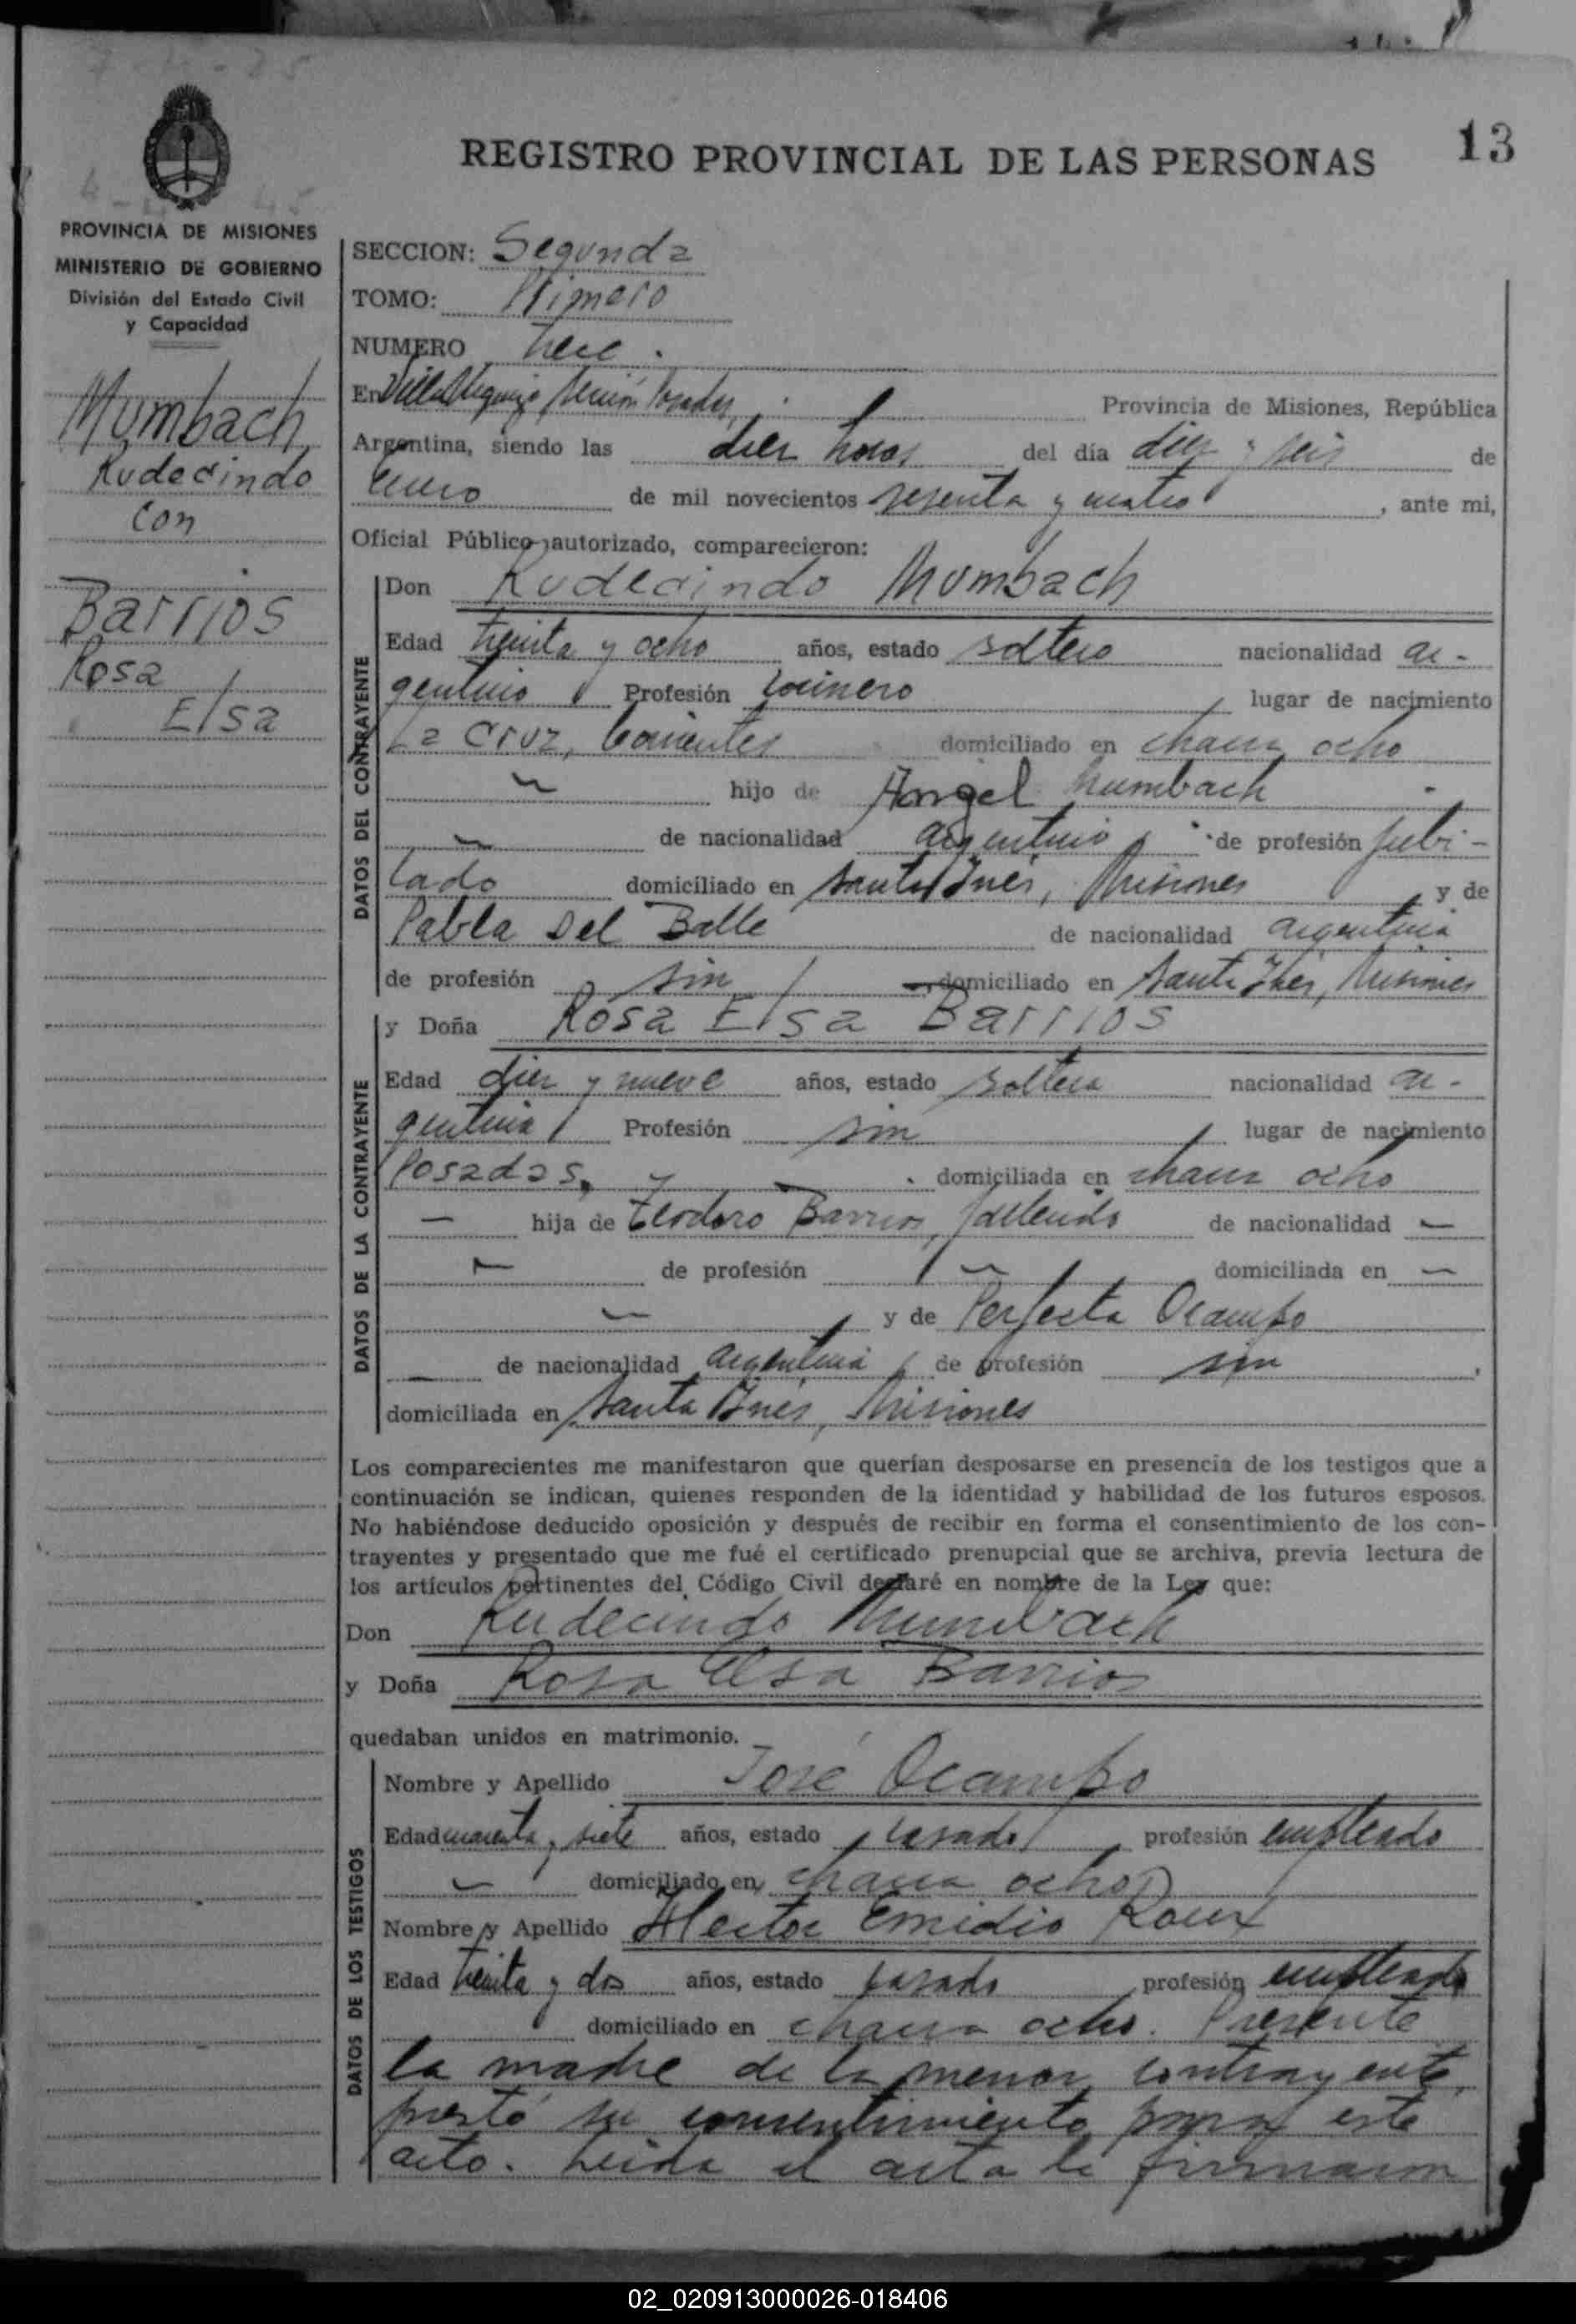 13
REGISTRO PROVINCIAL DE LAS PERSONAS
PROVINCIA DE MISIONES
MINISTERIO DE GOBIERNO
División del Estado Civil
y Capacidad
Mumbach
Rudecindo
con
Barrios
Rosa
Elsa
SECCION: Segunda
TOMO: Primero
NUMERO trece.
En Villa Urquiza, Posadas, Provincia de Misiones, República
Argentina, siendo las diez horas del día diez y seis de
enero de mil novecientos sesenta y cuatro, ante mi,
Oficial Público autorizado, comparecieron:
DATOS DEL CONTRAYENTE
Don Rudecindo Mumbach
Edad treinta y ocho años, estado soltero nacionalidad ar-
gentino Profesión cocinero lugar de nacimiento
La Cruz, Corrientes domiciliado en chacra ocho
hijo de Angel Mumbach
de nacionalidad argentino de profesión jubi-
lado domiciliado en Santa Inés, Misiones y de
Pabla Del Balle de nacionalidad argentina
de profesión sin domiciliado en Santa Inés, Misiones
DATOS DE LA CONTRAYENTE
y Doña Rosa Elsa Barrios
Edad diez y nueve años, estado soltera nacionalidad ar-
gentina Profesión sin lugar de nacimiento
Posadas, domiciliada en chacra ocho
— hija de Teodoro Barrios, fallecido de nacionalidad —
— de profesión — domiciliada en —
— y de Perfecta Ocampo
— de nacionalidad argentina de profesión sin
domiciliada en Santa Inés, Misiones
Los comparecientes me manifestaron que querían desposarse en presencia de los testigos que a
continuación se indican, quienes responden de la identidad y habilidad de los futuros esposos.
No habiéndose deducido oposición y después de recibir en forma el consentimiento de los con-
trayentes y presentado que me fué el certificado prenupcial que se archiva, previa lectura de
los artículos pertinentes del Código Civil declaré en nombre de la Ley que:
Don Rudecindo Mumbach
y Doña Rosa Elsa Barrios
quedaban unidos en matrimonio.
DATOS DE LOS TESTIGOS
Nombre y Apellido José Ocampo
Edad cuarenta y siete años, estado casado profesión empleado
— domiciliado en chacra ocho
Nombre y Apellido Hector Emidio Roux
Edad treinta y dos años, estado casado profesión empleado
domiciliado en chacra ocho. Presente
la madre de la menor contrayente,
prestó su consentimiento para este
acto. Leida el acta la firmaron
02_020913000026-018406